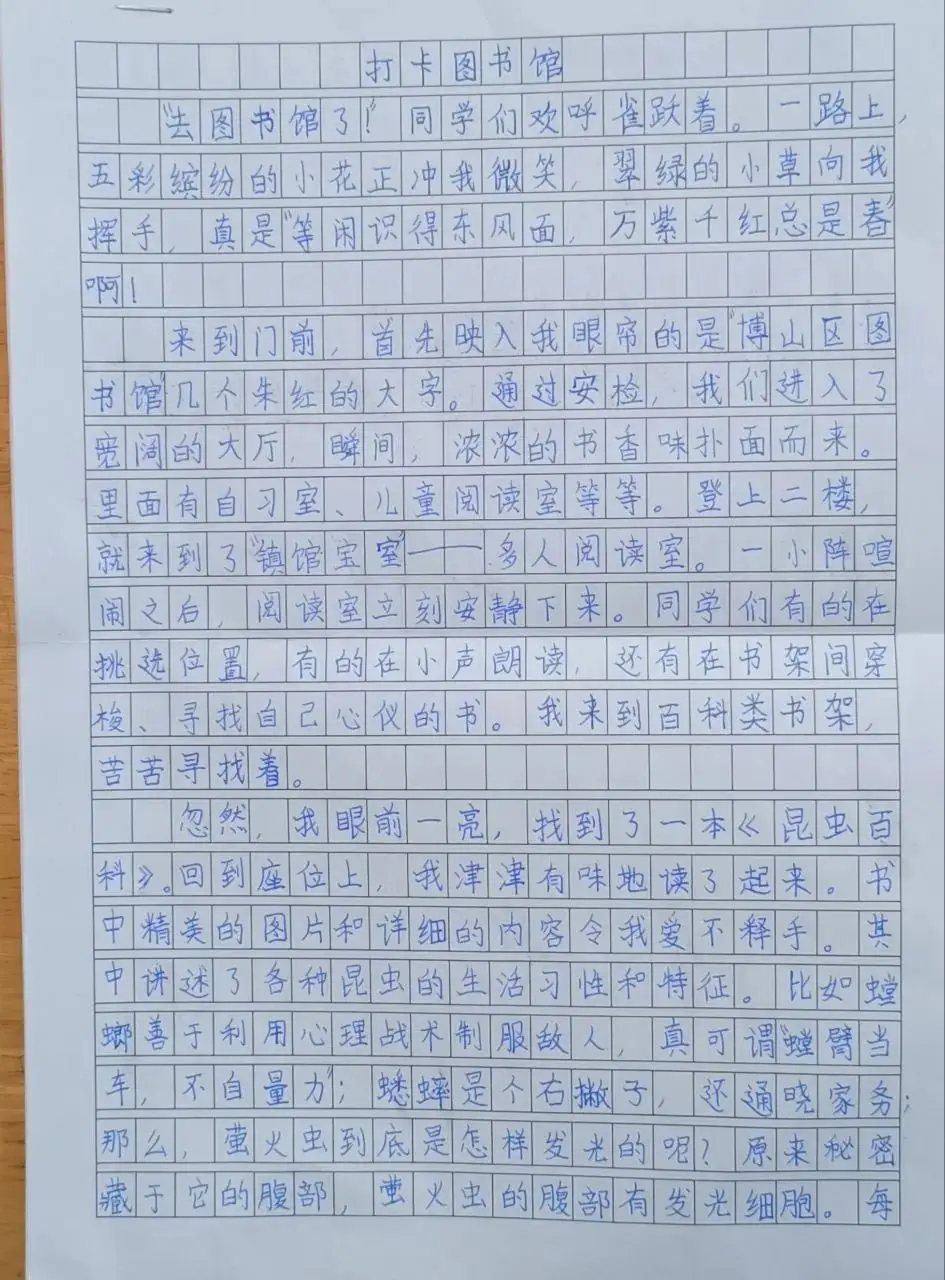 打卡图书馆
“去图书馆了!”同学们欢呼雀跃着。一路上,
五彩缤纷的小花正冲我微笑,翠绿的小草向我
挥手,真是“等闲识得东风面,万紫千红总是春”
啊!
来到门前,首先映入我眼帘的是“博山区图
书馆”几个朱红的大字。通过安检,我们进入了
宽阔的大厅,瞬间,浓浓的书香味扑面而来。
里面有自习室、儿童阅读室等等。登上二楼,
就来到了“镇馆宝室”——多人阅读室。一小阵喧
闹之后,阅读室立刻安静下来。同学们有的在
挑选位置,有的在小声朗读,还有在书架间穿
梭、寻找自己心仪的书。我来到百科类书架,
苦苦寻找着。
忽然,我眼前一亮,找到了一本《昆虫百
科》。回到座位上,我津津有味地读了起来。书
中精美的图片和详细的内容令我爱不释手。其
中讲述了各种昆虫的生活习性和特征。比如螳
螂善于利用心理战术制服敌人,真可谓“螳臂当
车,不自量力”;蟋蟀是个右撇子,还通晓家务;
那么,萤火虫到底是怎样发光的呢?原来秘密
藏于它的腹部,萤火虫的腹部有发光细胞。每